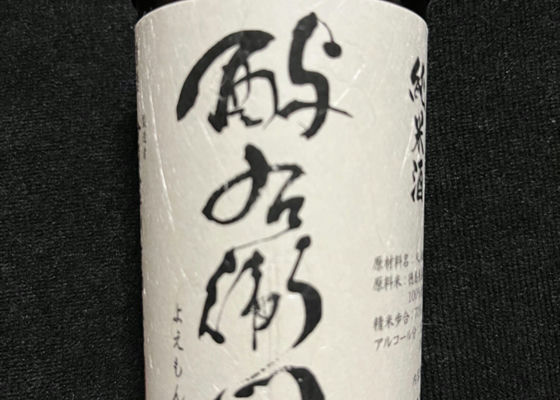 酉与右衛門
よえもん
純米酒
原材料名:
原料米:徳島
100%
精米歩合:70
アルコール分: